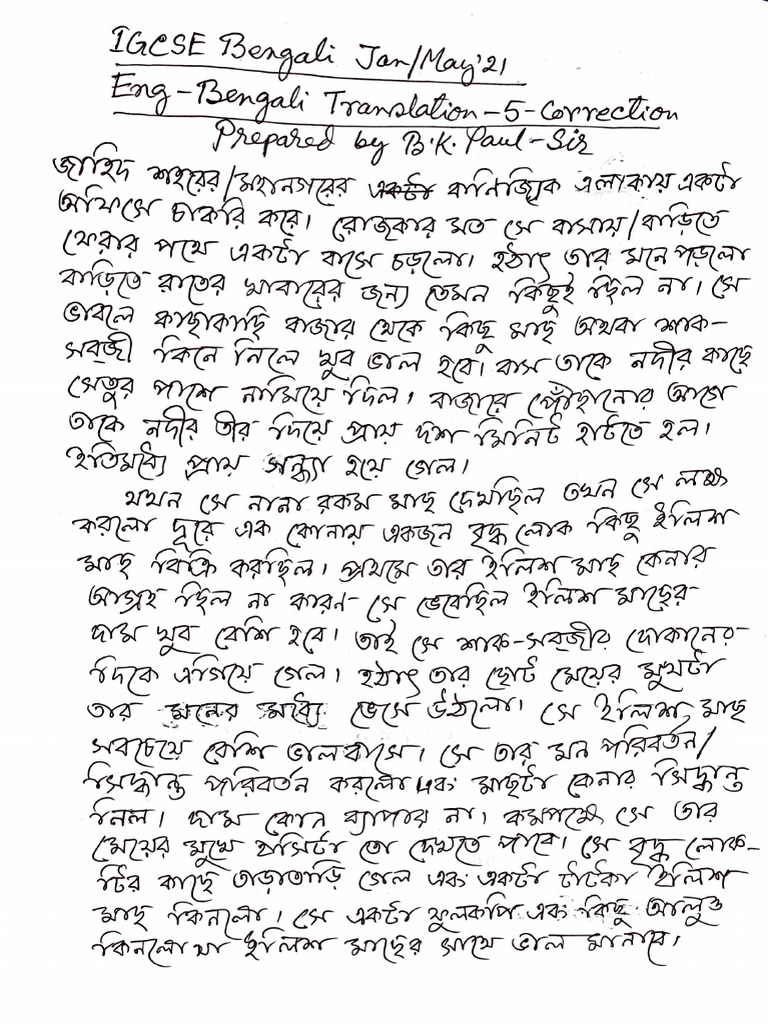 IGCSE Bengali Jan/May'21
Eng-Bengali Translation-5-Correction
Prepared by B.K. Paul-Sir
জাহিদ শহরের/মহানগরের একটা বানিজ্যিক এলাকায় একটা
অফিসে চাকরি করে। রোজকার মত সে বাসায়/বাড়িতে
ফেরার পথে একটা বাসে চড়লো। হঠাৎ তার মনে পড়লো
বাড়িতে রাতের খাবারের জন্য তেমন কিছুই ছিল না। সে
ভাবলে কাছাকাছি বাজার থেকে কিছু মাছ অথবা শাক-
সব্জী কিনে নিলে খুব ভাল হবে। বাস তাকে নদীর কাছে
সেতুর পাশে নামিয়ে দিল। বাজারে পৌঁছানোর আগে
তাকে নদীর তীর দিয়ে প্রায় দশ মিনিট হাটতে হল।
ইতিমধ্যে প্রায় সন্ধ্যা হয়ে গেল।
যখন সে নানা রকম মাছ দেখছিল তখন সে লক্ষ
করলো দূরে এক কোনায় একজন বৃদ্ধ লোক কিছু ইলিশ
মাছ বিক্রি করছিল। প্রথমে তার ইলিশ মাছ কেনার
আগ্রহ ছিল না কারণ সে ভেবেছিল ইলিশ মাছের
দাম খুব বেশি হবে। তাই সে শাক-সব্জীর দোকানের
দিকে এগিয়ে গেল। হঠাৎ তার ছোট মেয়ের মুখটা
তার মনের মধ্যে ভেসে উঠলো। সে ইলিশ মাছ
সবচেয়ে বেশি ভালবাসে। সে তার মন পরিবর্তন/
সিদ্ধান্ত পরিবর্তন করলো এবং মাছটা কেনার সিদ্ধান্ত
নিল। দাম কোন ব্যাপার না। কমপক্ষে সে তার
মেয়ের মুখে হাসিটা তো দেখতে পাবে। সে বৃদ্ধ লোক-
টির কাছে তাড়াতাড়ি গেল এবং একটা টাটকা ইলিশ
মাছ কিনলো। সে একটা ফুলকপি এবং কিছু আলুও
কিনলো যা ইলিশ মাছের সাথে ভাল মানাবে।